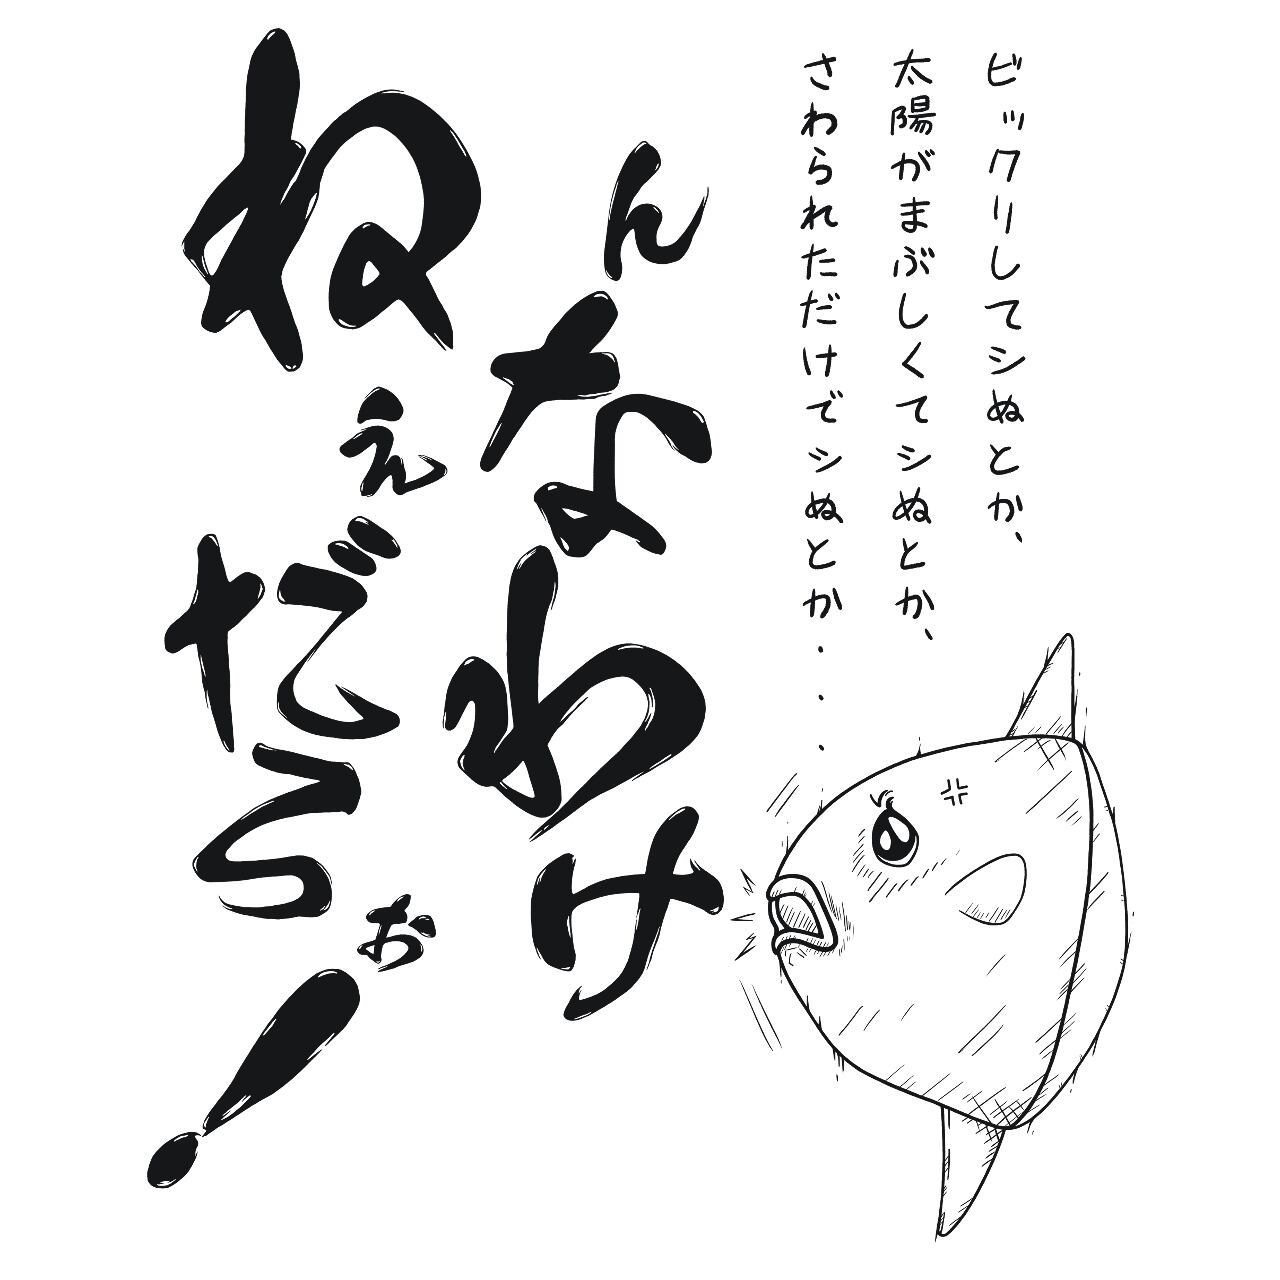 ビックリしてシぬとか、
太陽がまぶしくてシぬとか、
さわられただけでシぬとか・・・
んなわけ
ねぇだろぉ!